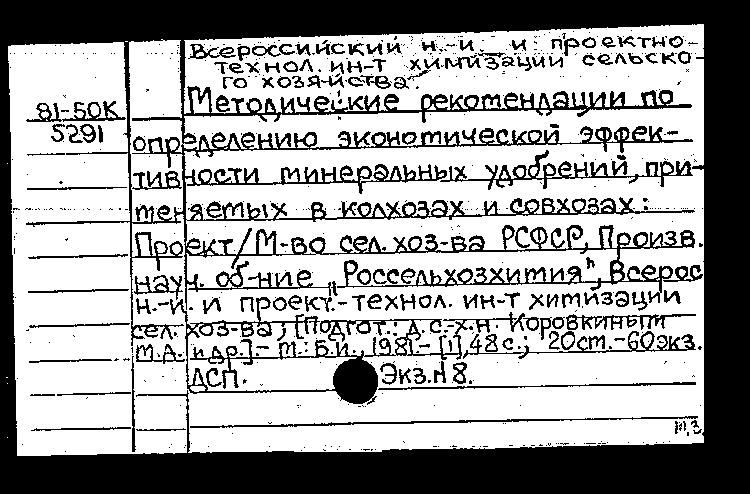 Всероссийский н.-и. и проектно-
технол. ин-т химизации сельско-
го хозяйства.
81-50К
5291
Методические рекомендации по
определению экономической эффек-
тивности минеральных удобрений, при-
меняемых в колхозах и совхозах:
Проект/М-во сел. хоз-ва РСФСР, Произв.
науч. об-ние "Россельхозхимия", Всерос
н.-и. и проект.-технол. ин-т химизации
сел. хоз-ва; [Подгот.: д.с.-х.н. Коровкиным
М.А. и др.].- М.: Б.И., 1981.- [1], 48 с.; 20 см.- 60 экз.
ДСП. Экз. № 8.
м.з.